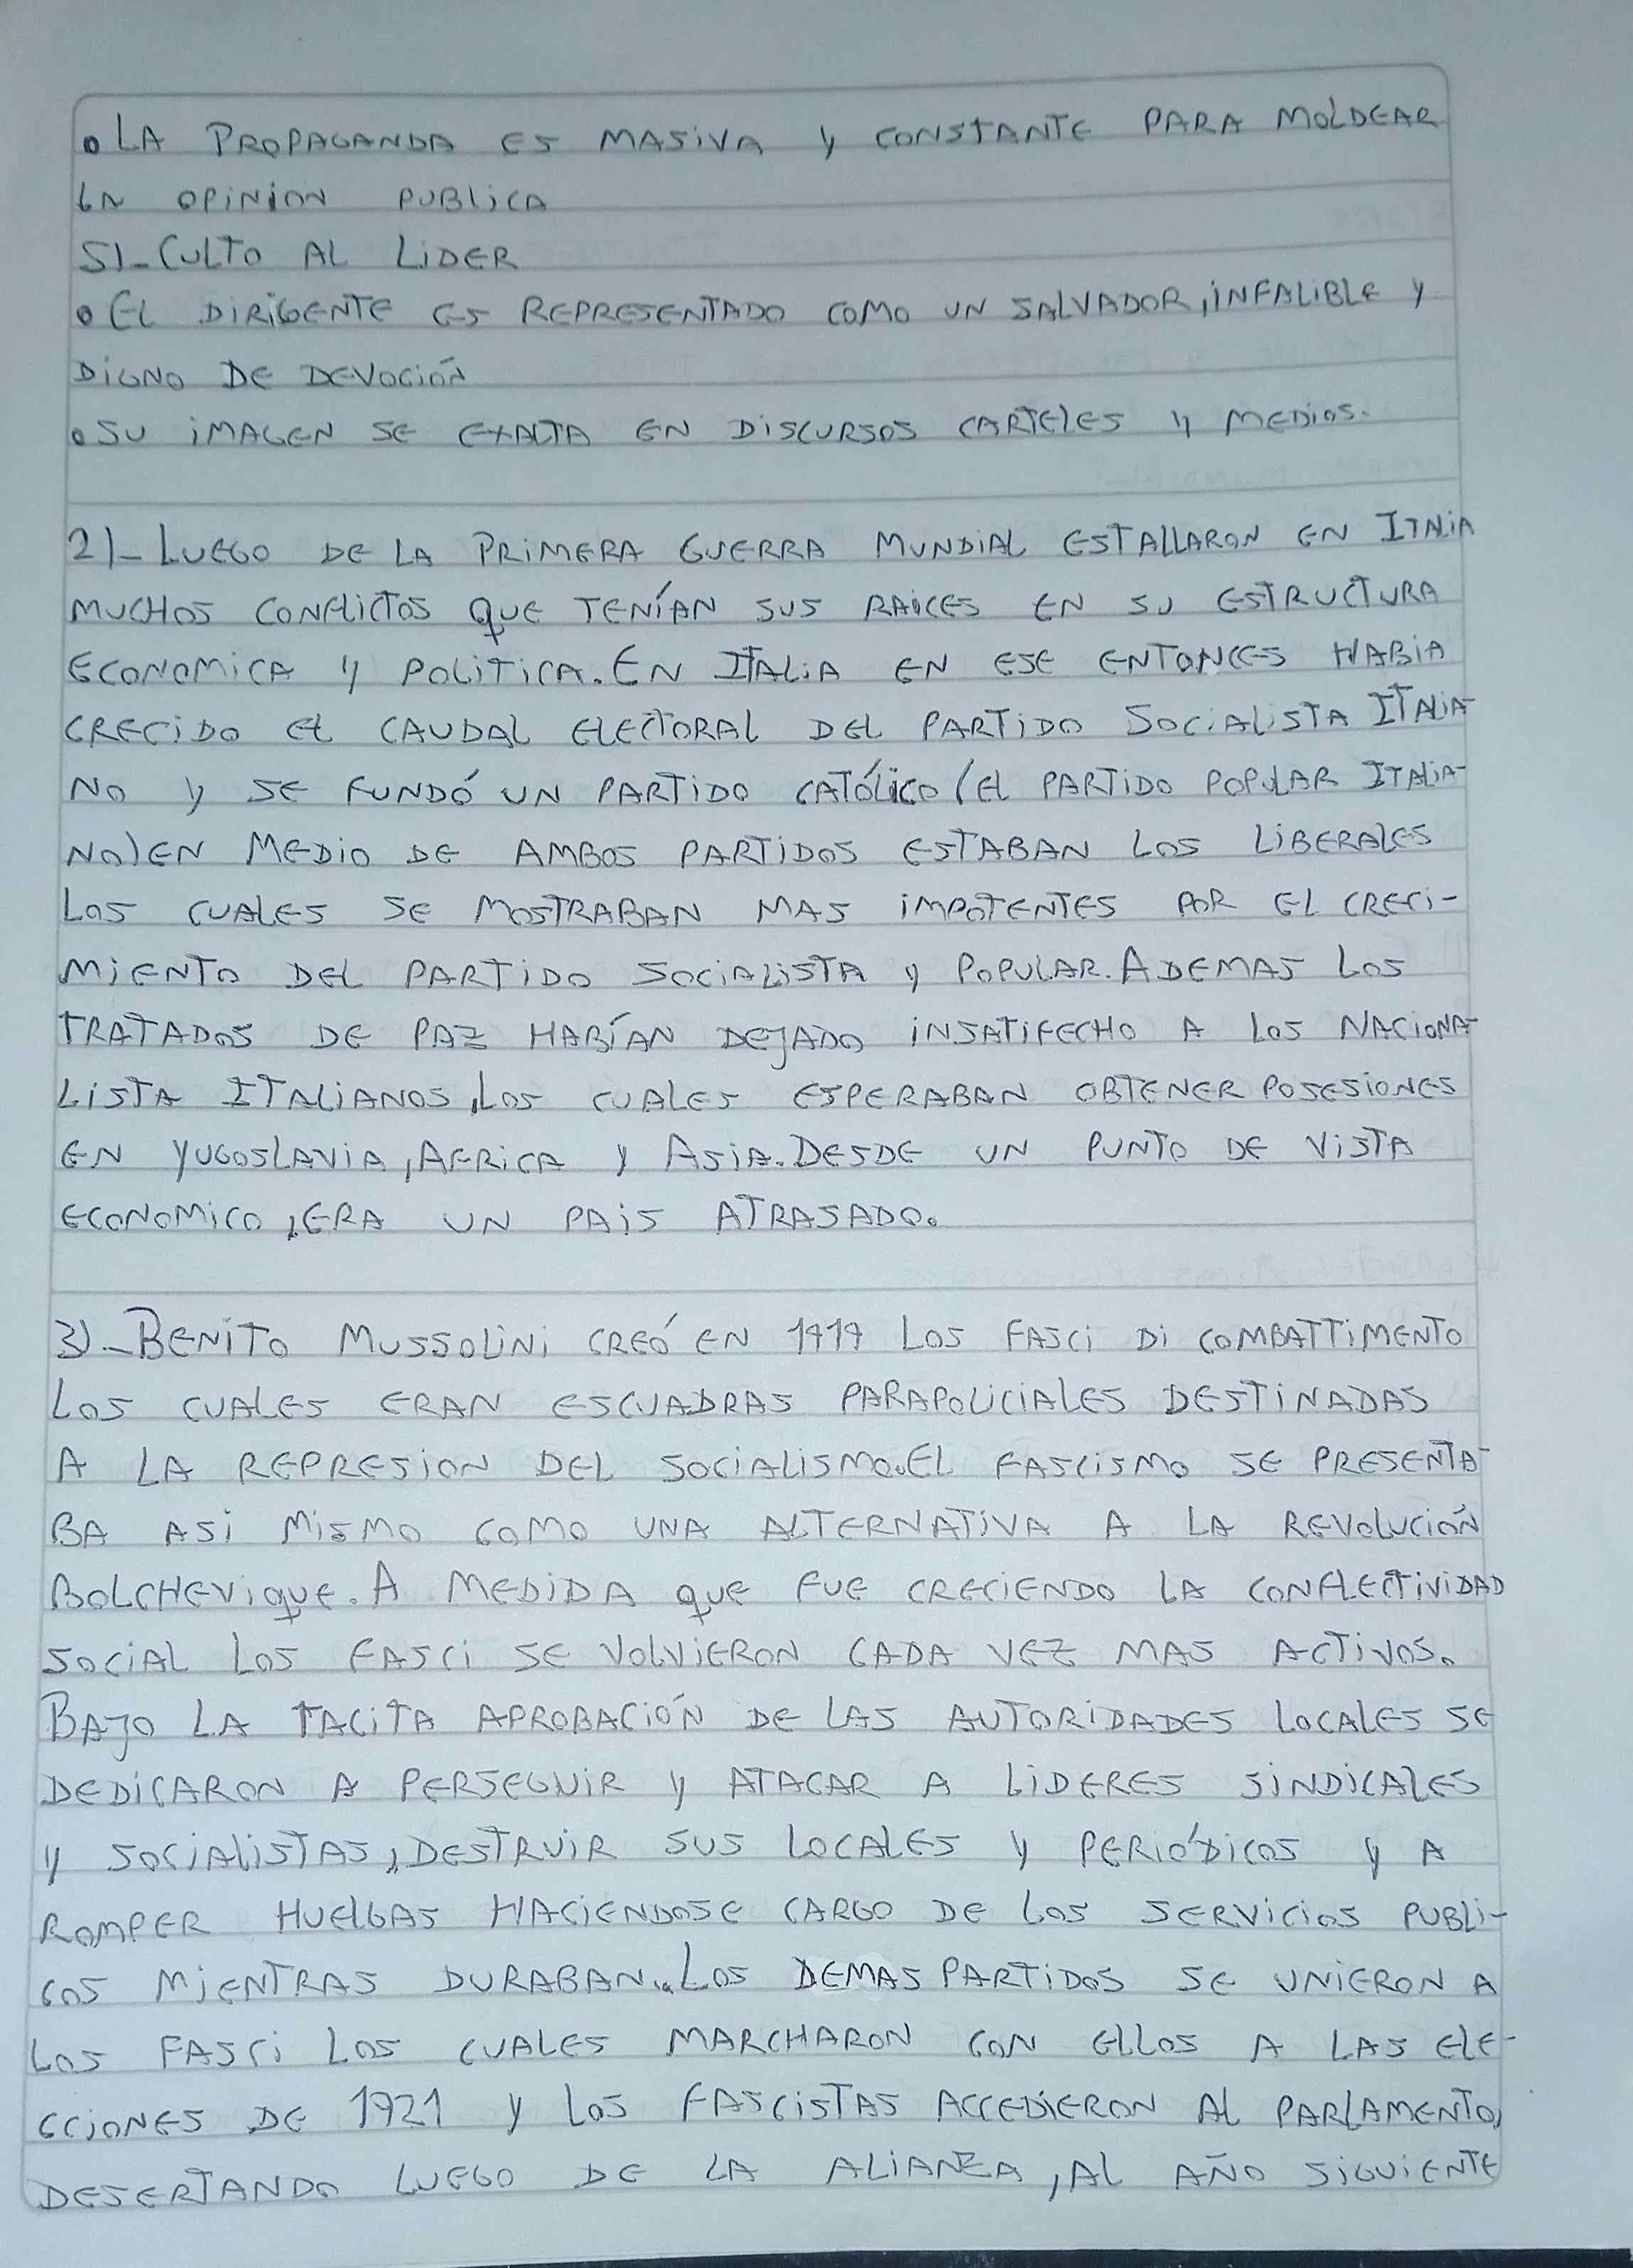 • LA PROPAGANDA ES MASIVA Y CONSTANTE PARA MOLDEAR
LA OPINION PUBLICA
5)- CULTO AL LIDER
• EL DIRIGENTE ES REPRESENTADO COMO UN SALVADOR, INFALIBLE Y
DIGNO DE DEVOCIÓN
• SU IMAGEN SE EXALTA EN DISCURSOS CARTELES Y MEDIOS.
2)- LUEGO DE LA PRIMERA GUERRA MUNDIAL ESTALLARON EN ITALIA
MUCHOS CONFLICTOS QUE TENÍAN SUS RAICES EN SU ESTRUCTURA
ECONOMICA Y POLITICA. EN ITALIA EN ESE ENTONCES HABIA
CRECIDO EL CAUDAL ELECTORAL DEL PARTIDO SOCIALISTA ITALIA-
NO Y SE FUNDÓ UN PARTIDO CATÓLICO (EL PARTIDO POPULAR ITALIA-
NO) EN MEDIO DE AMBOS PARTIDOS ESTABAN LOS LIBERALES
LOS CUALES SE MOSTRABAN MAS IMPOTENTES POR EL CRECI-
MIENTO DEL PARTIDO SOCIALISTA Y POPULAR. ADEMAS LOS
TRATADOS DE PAZ HABÍAN DEJADO INSATIFECHO A LOS NACIONA-
LISTA ITALIANOS, LOS CUALES ESPERABAN OBTENER POSESIONES
EN YUGOSLAVIA, AFRICA Y ASIA. DESDE UN PUNTO DE VISTA
ECONOMICO, ERA UN PAIS ATRASADO.
3)- BENITO MUSSOLINI CREÓ EN 1919 LOS FASCI DI COMBATTIMENTO
LOS CUALES ERAN ESCUADRAS PARAPOLICIALES DESTINADAS
A LA REPRESION DEL SOCIALISMO. EL FASCISMO SE PRESENTA-
BA ASI MISMO COMO UNA ALTERNATIVA A LA REVOLUCIÓN
BOLCHEVIQUE. A MEDIDA QUE FUE CRECIENDO LA CONFLECTIVIDAD
SOCIAL LOS FASCI SE VOLVIERON CADA VEZ MAS ACTIVOS.
BAJO LA TACITA APROBACIÓN DE LAS AUTORIDADES LOCALES SE
DEDICARON A PERSEGUIR Y ATACAR A LIDERES SINDICALES
Y SOCIALISTAS, DESTRUIR SUS LOCALES Y PERIÓDICOS Y A
ROMPER HUELGAS HACIENDOSE CARGO DE LOS SERVICIOS PUBLI-
COS MIENTRAS DURABAN. LOS DEMAS PARTIDOS SE UNIERON A
LOS FASCI LOS CUALES MARCHARON CON ELLOS A LAS ELE-
CCIONES DE 1921 Y LOS FASCISTAS ACCEDIERON AL PARLAMENTO,
DESERTANDO LUEGO DE LA ALIANZA, AL AÑO SIGUIENTE